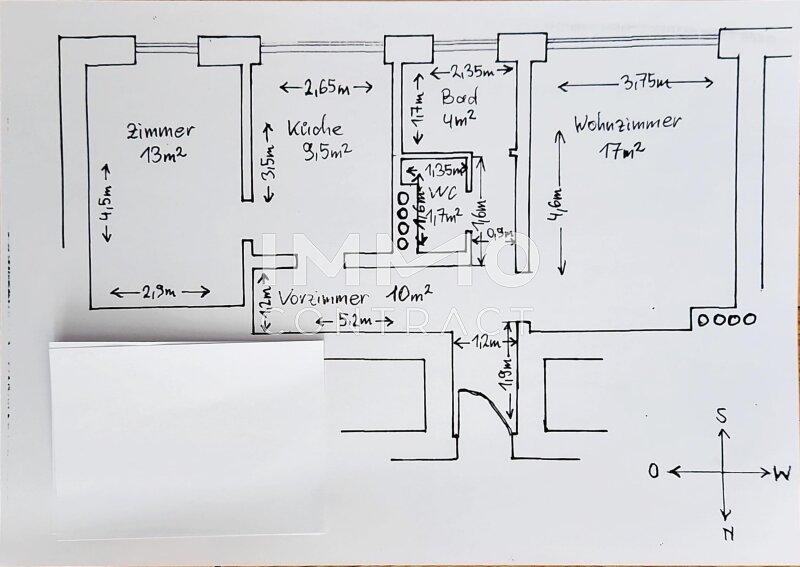 2,65m
2,35m
3,75m
Bad
4m²
1,7m
Zimmer
13m²
Küche
9,5m²
3,5m
Wohnzimmer
17m²
4,5m
1,35m
WC
1,7m²
1,6m
1,6m
0,9m
4,6m
IMMO
CONTRACT
2,9m
1,2m
Vorzimmer 10m²
5,2m
1,2m
1,9m
S
O
W
N